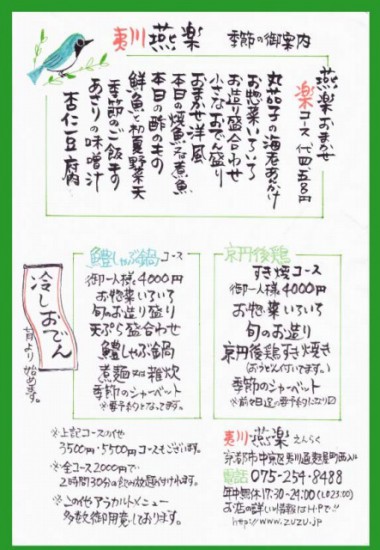 夷川 燕楽 季節の御案内
燕楽おまかせ
楽コース 代四五〇〇円
丸茄子の海老あんかけ
お惣菜いろいろ
お造り盛合わせ
小さなおでん盛り
おまかせ洋風
本日の焼魚又は煮魚
本日の酢のもの
鮮魚と初夏野菜天
季節のご飯もの
あさりの味噌汁
杏仁豆腐
冷しおでん
より始めます。
鱧しゃぶ鍋コース
御一人様 4000円
お惣菜いろいろ
旬のお造り盛り
天ぷら盛合わせ
鱧しゃぶ鍋
煮麺又は雑炊
季節のシャーベット
※要予約となってます。
京丹後鶏
すき焼コース
御一人様 4000円
お惣菜いろいろ
旬のお造り
京丹後鶏すき焼き
(おうどん付いてます。)
季節のシャーベット
※前々日迄の要予約になり〼
※上記コースの他
3500円・5500円コースもございます。
※全コース2000円で
2時間30分の飲み放題付けれます。
※この他アラカルトメニュー
多数御用意しております。
夷川 燕楽 えんらく
京都市中京区夷川通麩屋町西入ル
電話 075-254-8488
年中無休 17:30-24:00(LO23:00)
お店の詳しい情報はHPで!!
http://www.zuzu.jp